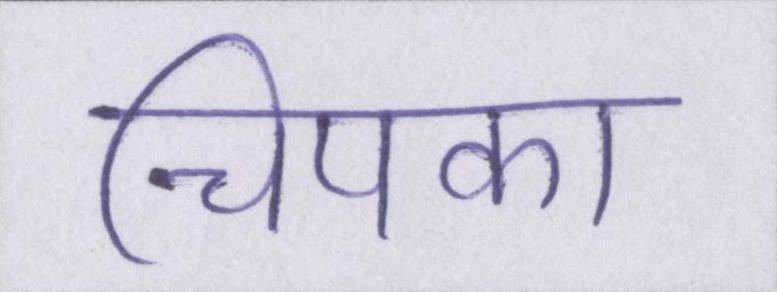 चिपका